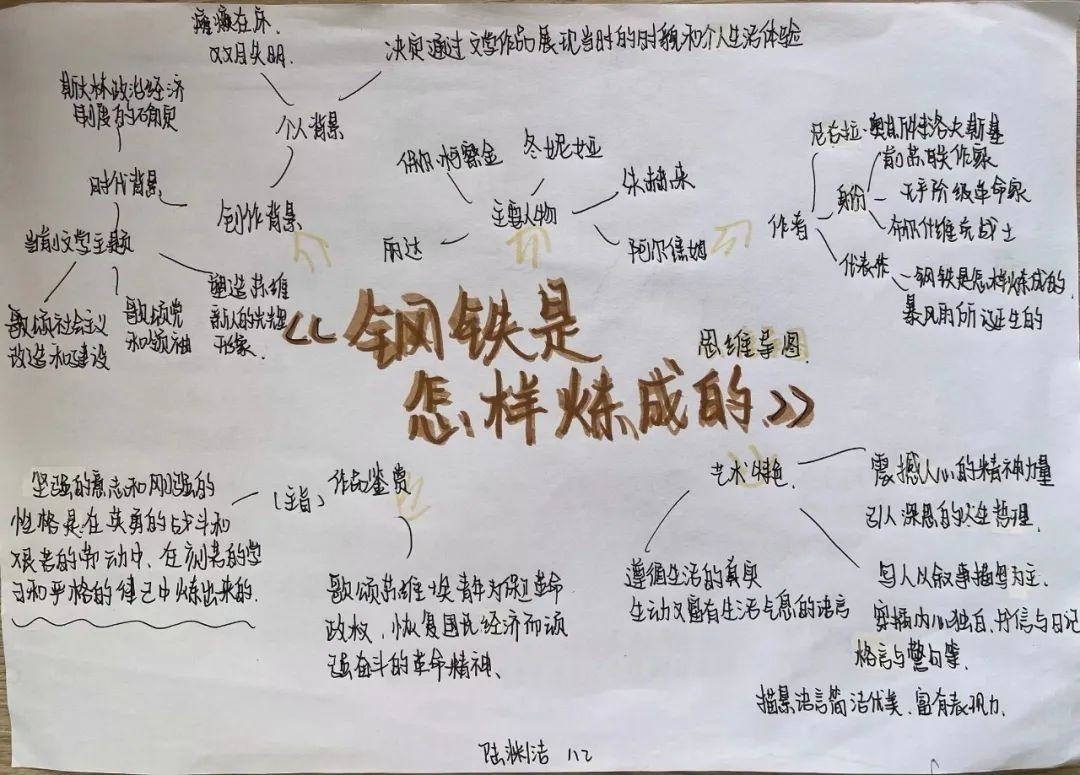 瘫痪在床.
双目失明.
决定通过文学作品展现当时的时貌和个人生活体验
个人背景
斯大林政治经济
制度的确立
时代背景
创作背景
当时文学主题
歌颂社会主义
改造和建设
歌颂党
和领袖
塑造苏维
新人的光辉
形象.
保尔·柯察金
冬妮娅
朱赫来
主要人物
丽达
阿尔焦姆
作者
尼古拉·奥斯特洛夫斯基
身份
前苏联作家
无产阶级革命家
布尔什维克战士
代表作
钢铁是怎样炼成的.
暴风雨所诞生的
《钢铁是
怎样炼成的》
思维导图
作品鉴赏
(主旨)
坚强的意志和刚强的
性格是在英勇的战斗和
艰苦的劳动中、在刻苦的学
习和严格的律己中炼出来的.
歌颂苏维埃青年为保卫革命
政权、恢复国民经济而顽
强奋斗的革命精神、
艺术特色
震撼人心的精神力量
引人深思的人生哲理.
遵循生活的真实
生动又富有生活气息的语言
写人以叙事描写为主.
穿插内心独白、书信与日记
格言与警句等
描景语言简洁优美、富有表现力.
陆渊洁 112